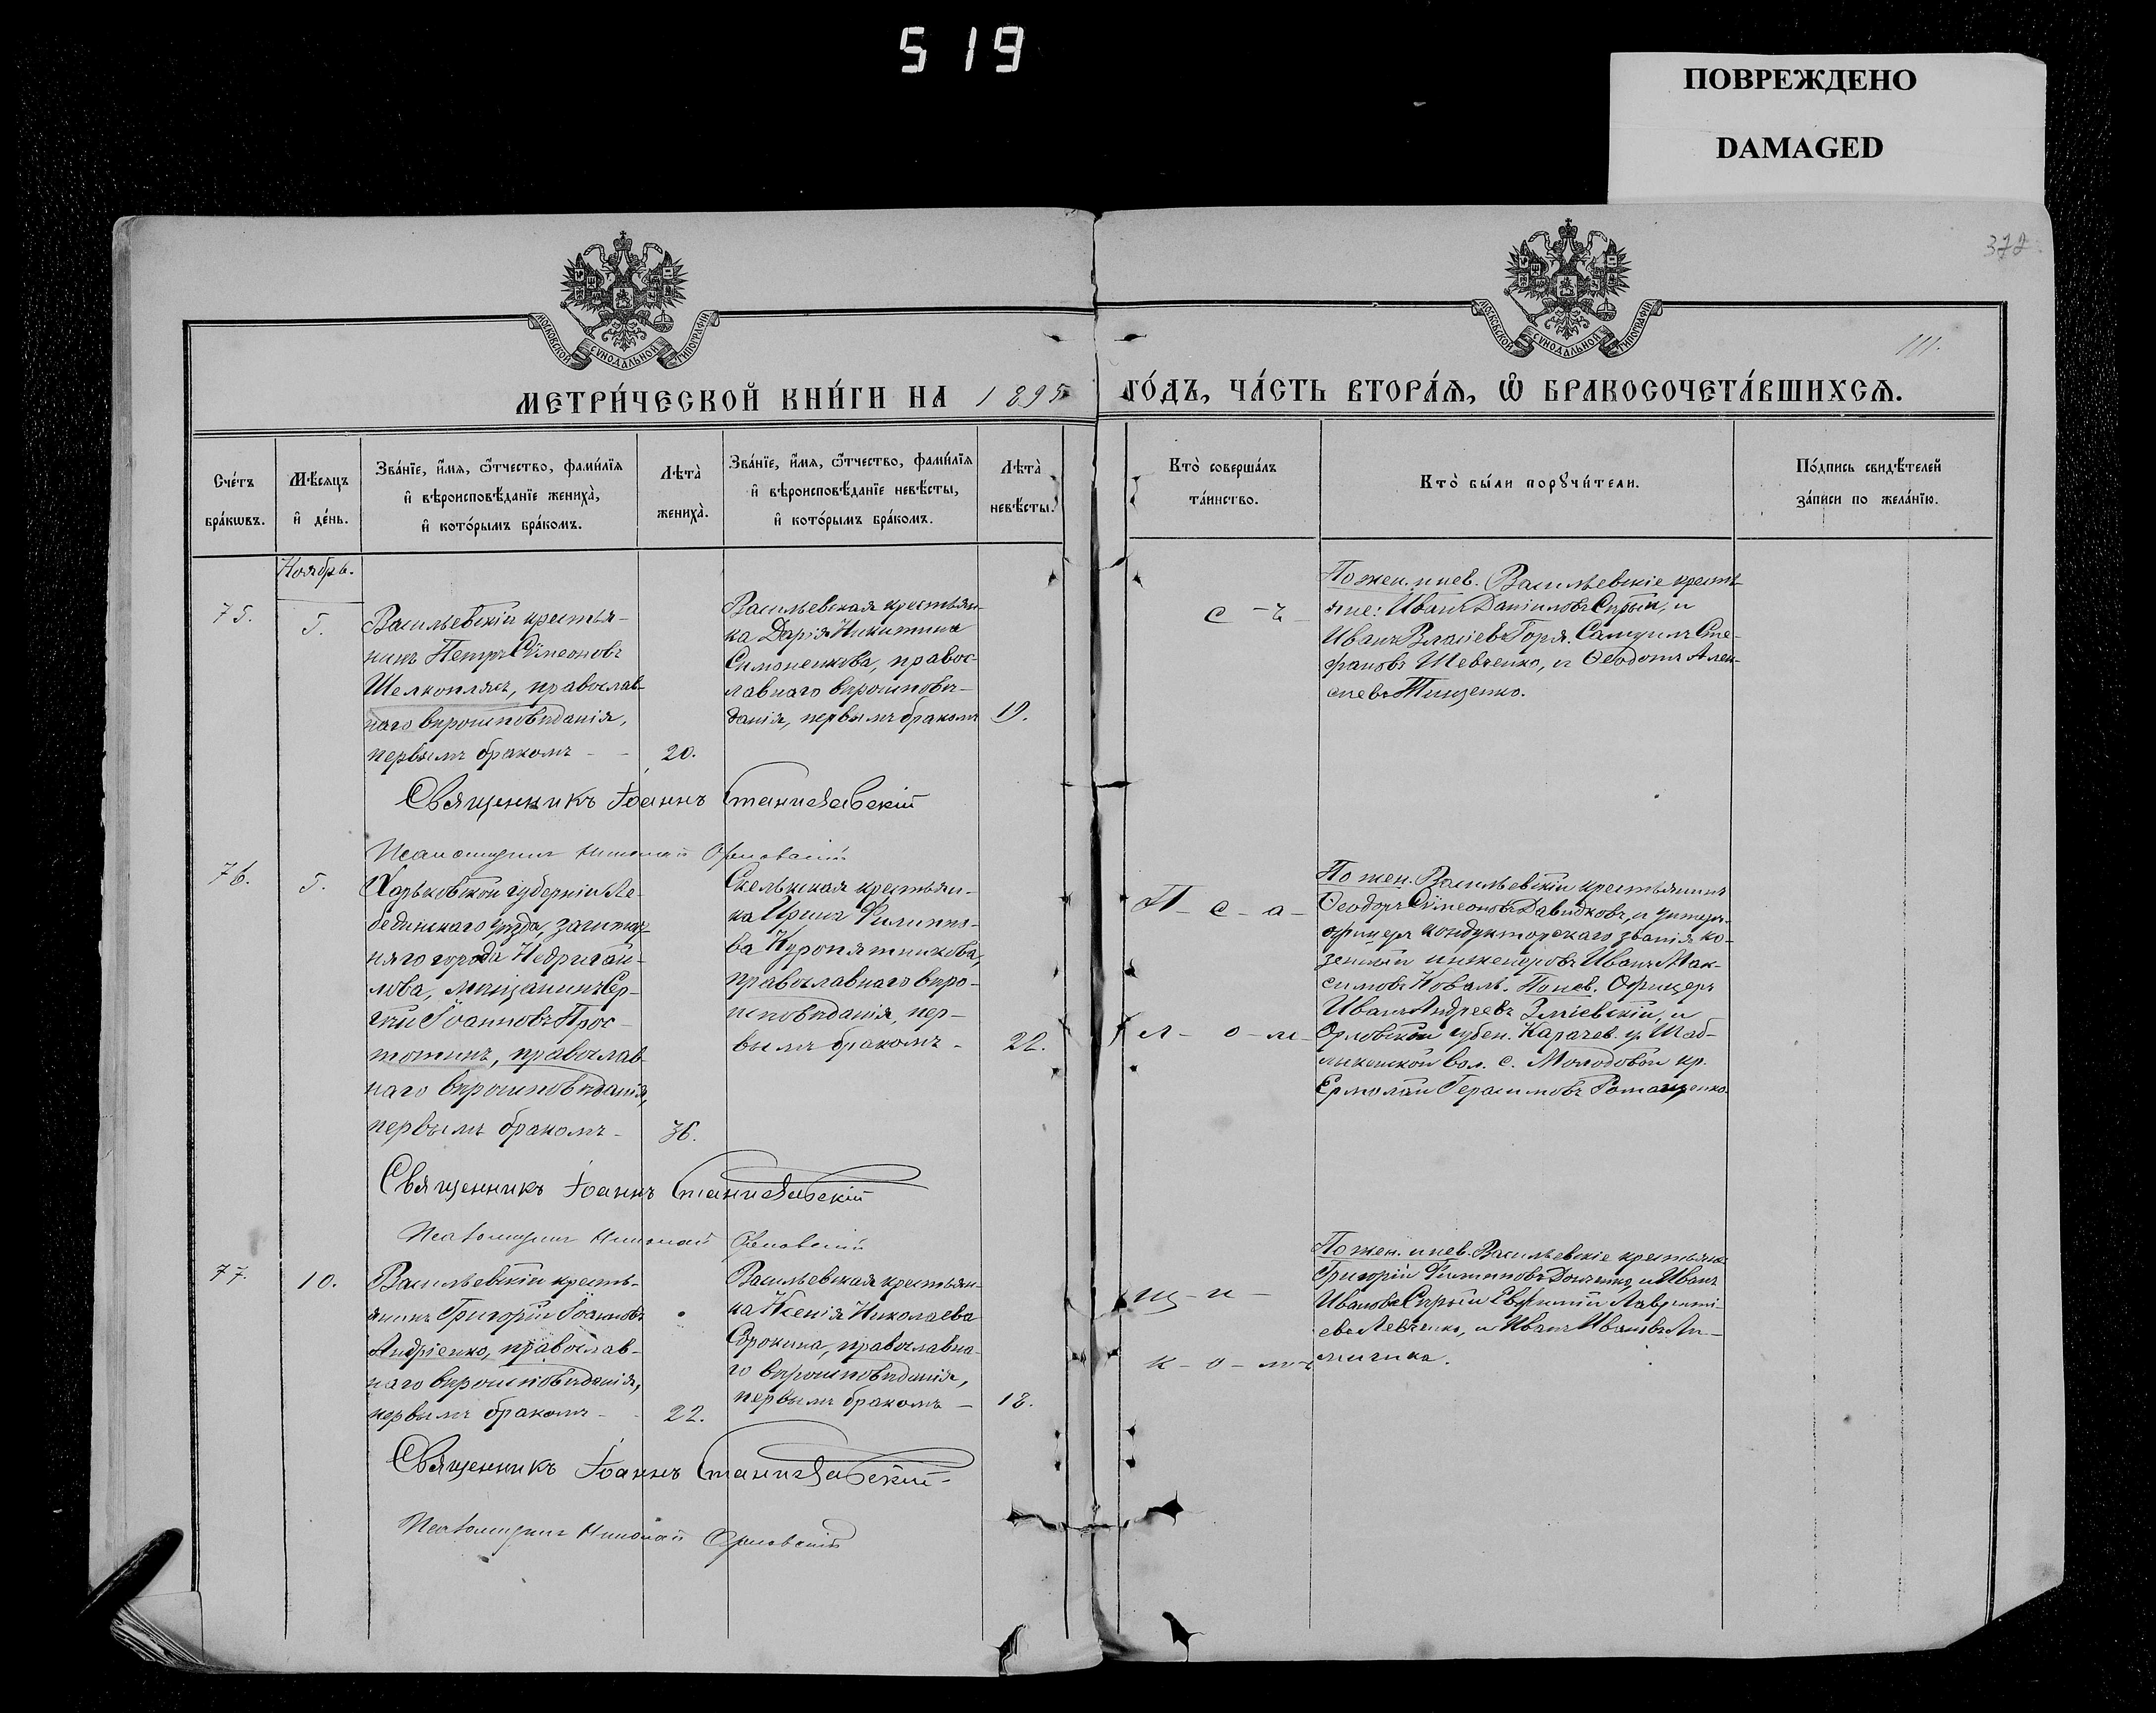 519
ПОВРЕЖДЕНО
DAMAGED
372
111.
МОСКОВСКОЙ СѴНОДАЛЬНОЙ ТИПОГРАФІИ
МОСКОВСКОЙ СѴНОДАЛЬНОЙ ТИПОГРАФІИ
МЕТРИ́ЧЕСКОЙ КНИ́ГИ НА 1895 ГО́ДЪ, ЧА́СТЬ ВТОРА́Ѧ, Ѽ БРАКОСОЧЕТА́ВШИХСѦ.
Сче́тъ бра́кѡвъ.
Мѣ́сѧцъ и҆ де́нь.
Зва́нїе, и҆́мѧ, ѻ҆́тчество, фами́лїѧ и҆ вѣроисповѣ́данїе жениха̀, и҆ кото́рымъ бра́комъ.
Лѣта̀ жениха̀.
Зва́нїе, и҆́мѧ, ѻ҆́тчество, фами́лїѧ и҆ вѣроисповѣ́данїе невѣ́сты, и҆ кото́рымъ бра́комъ.
Лѣта̀ невѣ́сты.
Кто̀ соверша́лъ та́инство.
Кто̀ бы́ли порꙋчи́тели.
По́дпись свидѣ́телей за́писи по жела́нїю.
Ноябрь.
75.
5.
Васильевскій крестья-
нинъ Петръ Сѵмеоновъ
Шелкоплясъ, православ-
наго вѣроисповѣданія,
первымъ бракомъ - -
20.
Васильевская крестьян-
ка Дарія Никитина
Симоненкова, правос-
лавнаго вѣроисповѣ-
данія, первымъ бракомъ
19.
По жен. и нев. Васильевскіе кресть-
яне: Иванъ Даніиловъ Сѣрый, и
Иванъ Власіевъ Горя. Самуилъ Сте-
фановъ Шевченко, и Ѳеодотъ Алек-
сѣевъ Тищенко.
Священникъ Іоаннъ Станиславскій
Псаломщикъ Николай Орловскій
76.
5.
Харьковской губерніи Ле-
бединскаго уѣзда, заштат-
наго города Недригай-
лова, мѣщанинъ Сер-
гѣй Іоанновъ Прос-
тотинъ, православ-
наго вѣроисповѣданія,
первымъ бракомъ -
36.
Скельская крестьян-
ка Ирина Филиппо-
ва Куропятникова,
православнаго вѣро-
исповѣданія, пер-
вымъ бракомъ -
22.
П - с - а -
л - о - м -
По жен. Васильевскій крестьянинъ
Ѳеодоръ Сѵмеоновъ Давидковъ, и унтеръ-
офицеръ кондукторскаго званія
инженеровъ Иванъ Мак-
симовъ Коваль. По нев. Офицеръ
Иванъ Андреевъ Зміевскій, и
Орловской губен. Карачев. у. Шаб-
лыкинской вол. с. Молодовой кр.
Ермолай Герасимовъ Ромащенко.
Священникъ Іоаннъ Станиславскій
Псаломщикъ Николай Орловскій
77.
10.
Васильевскій кресть-
янинъ Григорій Іоанновъ
Андріенко, православ-
наго вѣроисповѣданія,
первымъ бракомъ -
22.
Васильевская крестьян-
ка Ксенія Николаева
Сорокина, православна-
го вѣроисповѣданія,
первымъ бракомъ -
18.
щ - и -
к - о - мъ
По жен. и нев. Васильевскіе крестьяне
Григорій Филипповъ и Иванъ
Ивановъ Сѣрый Евфимій Лаврентi-
евъ Левченко, и Иванъ Ивановъ
Священникъ Іоаннъ Станиславскій.
Псаломщикъ Николай Орловскій